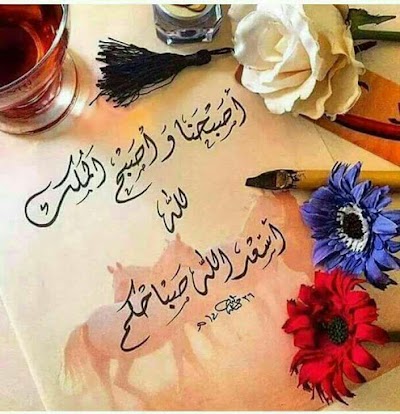 أَصْبَحْنَا وَ أَصْبَحَ الْمُلْكُ
لله
أَسْعَدَ اللهُ صَبَاحَكُم